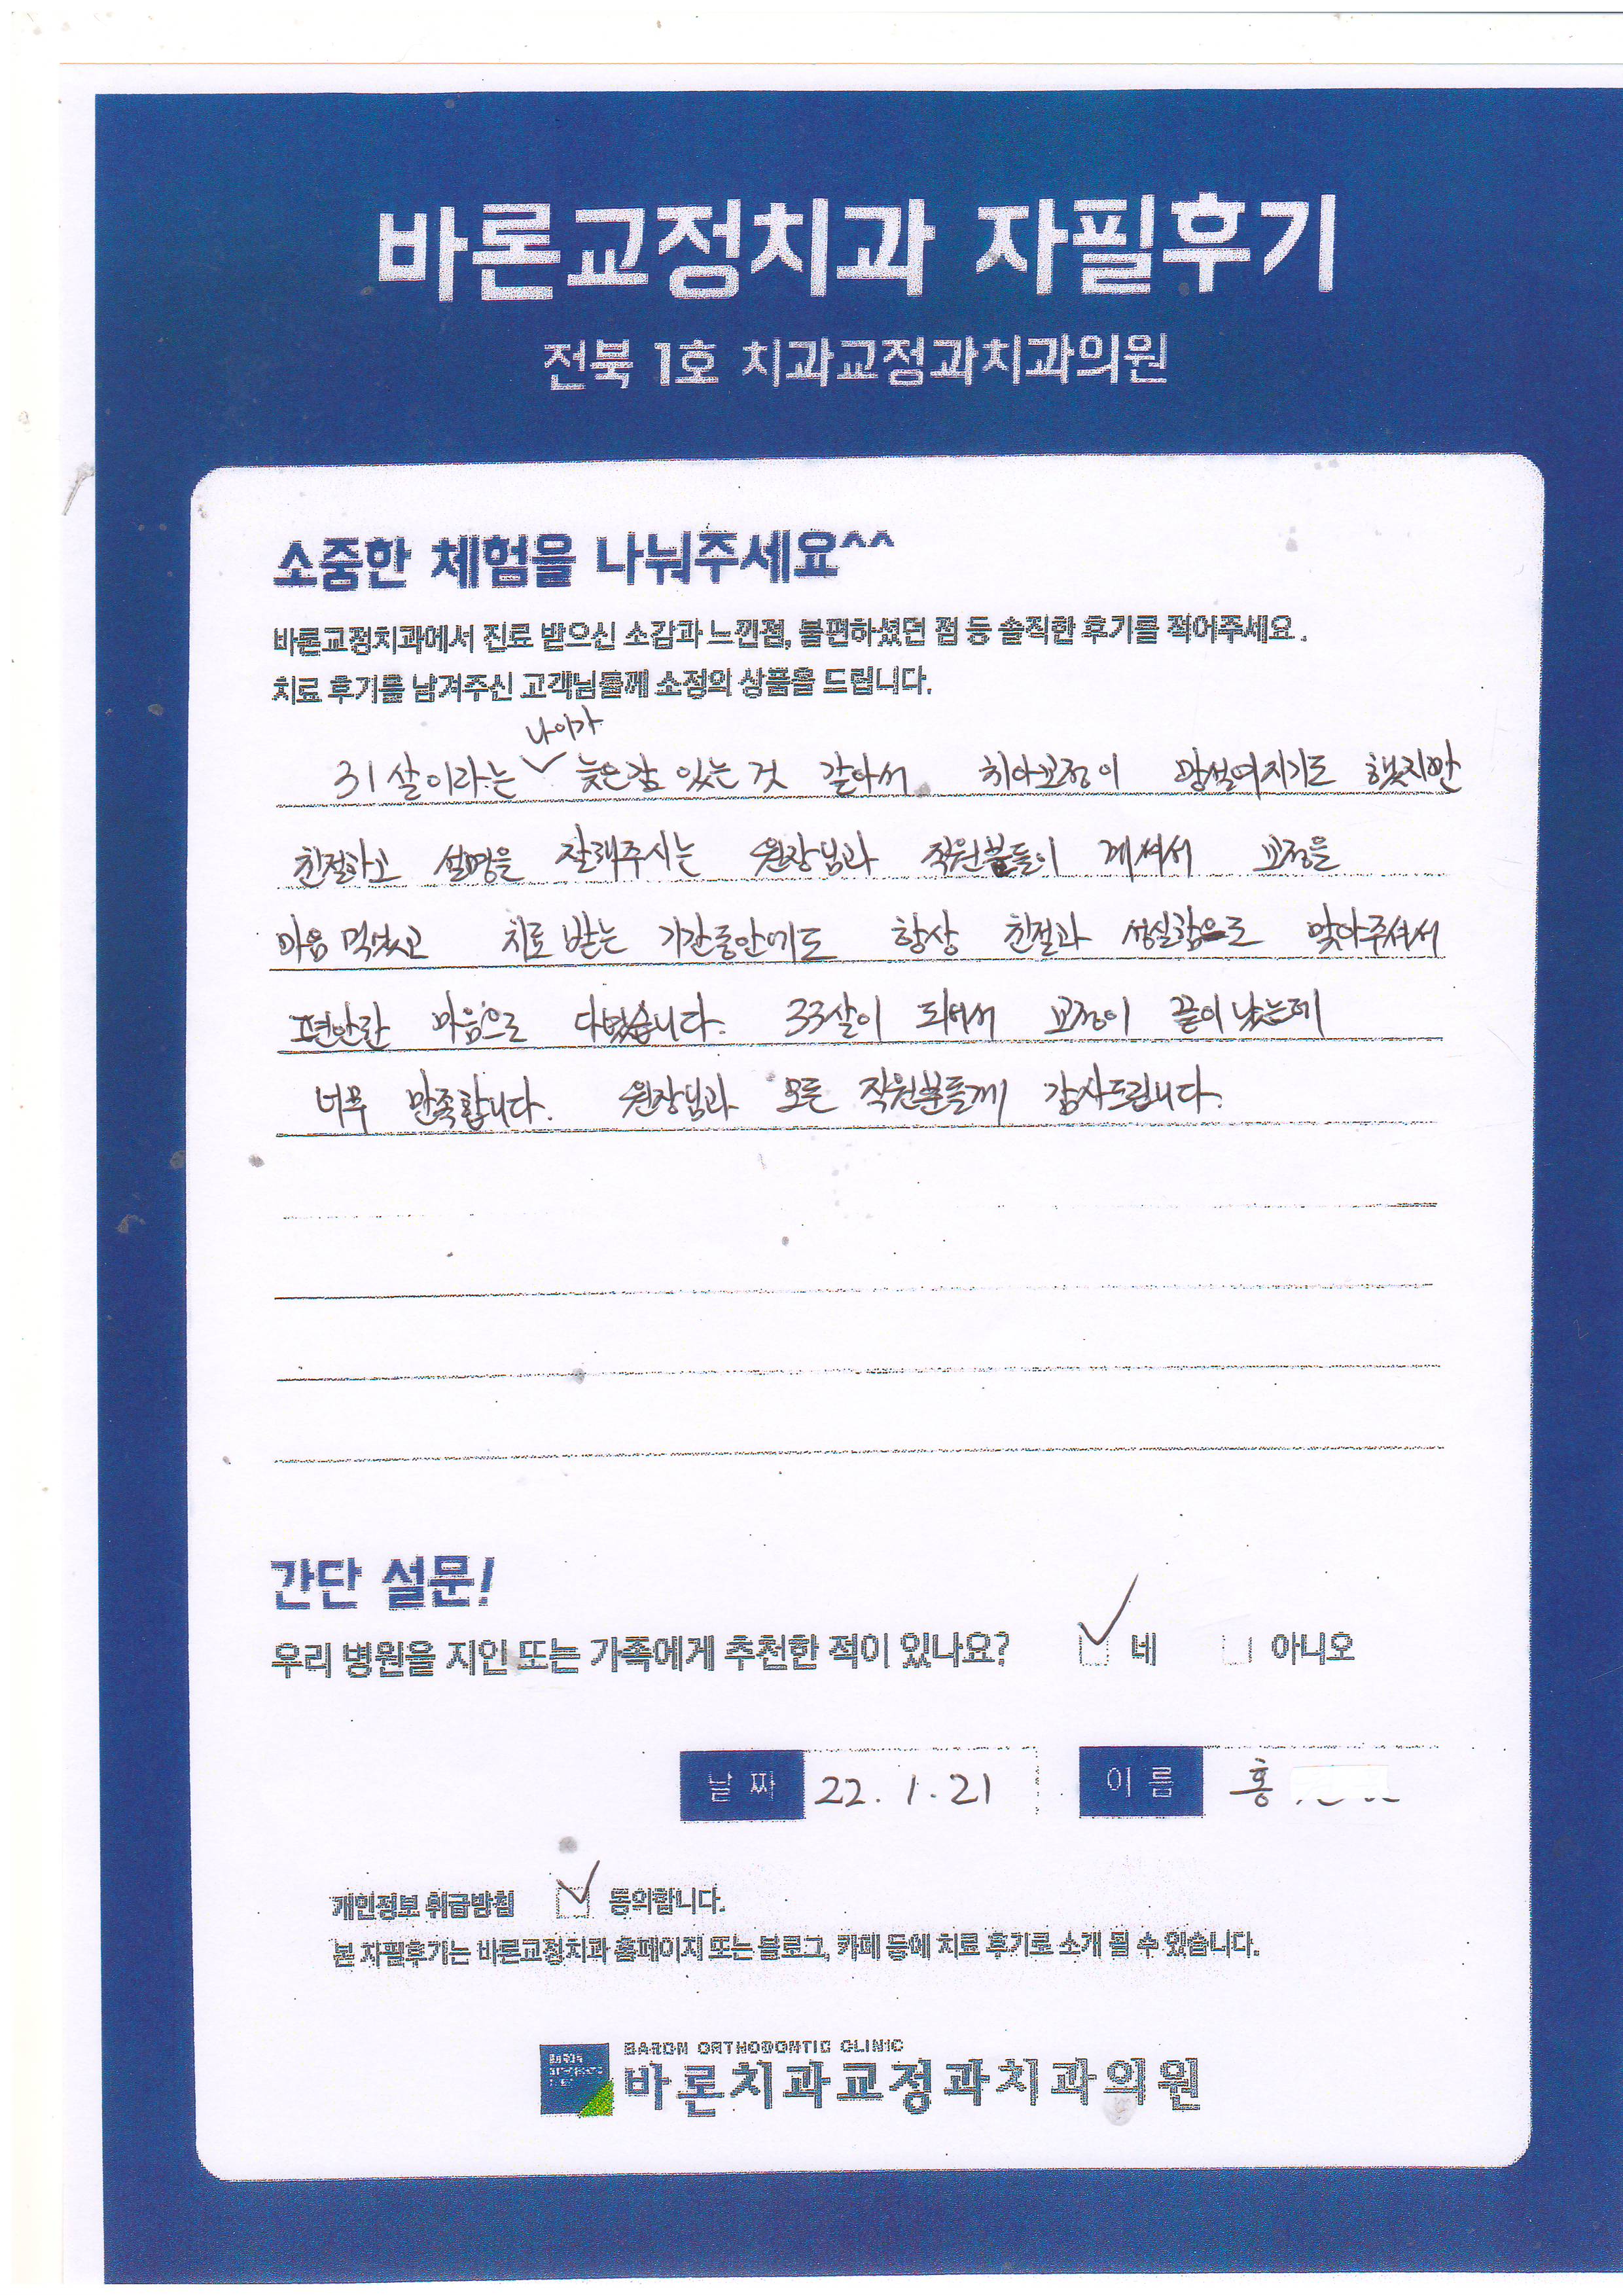 바른교정치과 자필후기
전북 1호 치과교정과치과의원
소중한 체험을 나눠주세요^^
바른교정치과에서 진료 받으신 소감과 느낀점, 불편하셨던 점 등 솔직한 후기를 적어주세요.
치료 후기를 남겨주신 고객님들께 소정의 상품을 드립니다.
나이가
31살이라는 ✓ 늦은감 있는 것 같아서 치아교정이 망설여지기도 했지만
친절하고 설명을 잘해주시는 원장님과 직원분들이 계셔서 교정을
마음 먹었고 치료 받는 기간동안에도 항상 친절과 성실함으로 맞아주셔서
편안한 마음으로 다녔습니다. 33살이 되어서 교정이 끝이 났는데
너무 만족합니다. 원장님과 모든 직원분들께 감사드립니다.
간단 설문!
우리 병원을 지인 또는 가족에게 추천한 적이 있나요? ✓ 네 아니오
날짜 22.1.21 이름 홍
개인정보 취급방침 ✓ 동의합니다.
본 자필후기는 바른교정치과 홈페이지 또는 블로그, 카페 등에 치료 후기로 소개 될 수 있습니다.
BARON ORTHODONTIC CLINIC
바른치과교정과치과의원